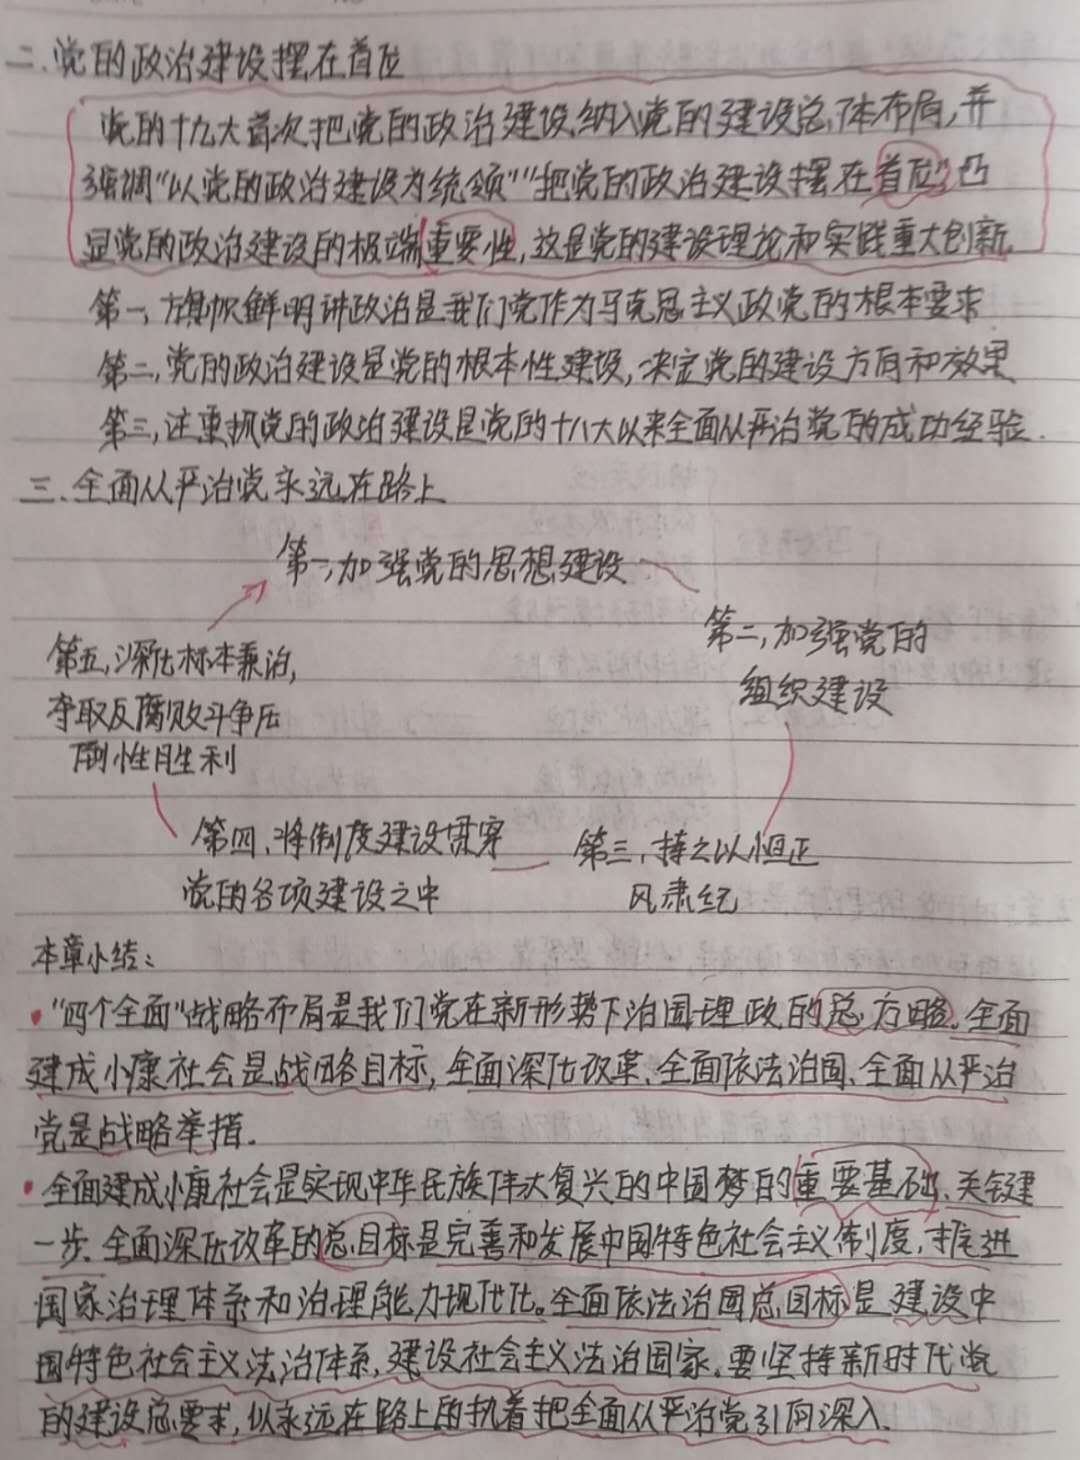 二、党的政治建设摆在首位
党的十九大首次把党的政治建设纳入党的建设总体布局，并
强调“以党的政治建设为统领”“把党的政治建设摆在首位”，凸
显党的政治建设的极端重要性，这是党的建设理论和实践重大创新
第一，旗帜鲜明讲政治是我们党作为马克思主义政党的根本要求
第二，党的政治建设是党的根本性建设，决定党的建设方向和效果
第三，注重抓党的政治建设是党的十八大以来全面从严治党的成功经验.
三、全面从严治党永远在路上
第一，加强党的思想建设
第二，加强党的
组织建设
第三，持之以恒正
风肃纪
第四、将制度建设贯穿
党的各项建设之中
第五，深化标本兼治，
夺取反腐败斗争压
倒性胜利
本章小结：
·“四个全面”战略布局是我们党在新形势下治国理政的总方略。全面
建成小康社会是战略目标，全面深化改革、全面依法治国、全面从严治
党是战略举措.
·全面建成小康社会是实现中华民族伟大复兴的中国梦的重要基础、关键
一步.全面深化改革的总目标是完善和发展中国特色社会主义制度，推进
国家治理体系和治理能力现代化。全面依法治国总目标是建设中
国特色社会主义法治体系，建设社会主义法治国家.要坚持新时代党
的建设总要求，以永远在路上的执着把全面从严治党引向深入.